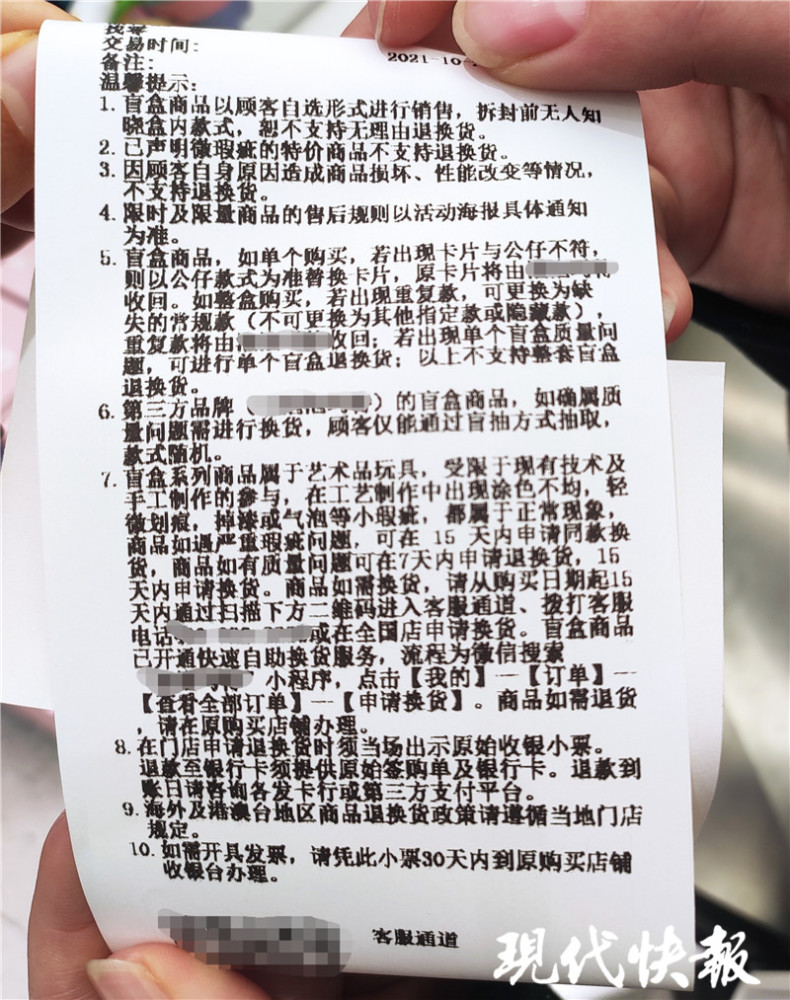 交易时间:
2021-10-
备注:
温馨提示:
1. 盲盒商品以顾客自选形式进行销售，拆封前无人知
晓盒内款式，恕不支持无理由退换货。
2. 已声明微瑕疵的特价商品不支持退换货。
3. 因顾客自身原因造成商品损坏、性能改变等情况，
不支持退换货。
4. 限时及限量商品的售后规则以活动海报具体通知
为准。
5. 盲盒商品，如单个购买，若出现卡片与公仔不符，
则以公仔款式为准替换卡片，原卡片将由
收回。如整盒购买，若出现重复款，可更换为缺
失的常规款（不可更换为其他指定款或隐藏款），
重复款将由 收回；若出现单个盲盒质量问
题，可进行单个盲盒退换货；以上不支持整套盲盒
退换货。
6. 第三方品牌（ ）的盲盒商品，如确属质
量问题需进行换货，顾客仅能通过盲抽方式抽取，
款式随机。
7. 盲盒系列商品属于艺术品玩具，受限于现有技术及
手工制作的参与，在工艺制作中出现涂色不均，轻
微划痕，掉漆或气泡等小瑕疵，都属于正常现象，
商品如遇严重瑕疵问题，可在 15 天内申请同款换
货，商品如有质量问题可在7天内申请退换货，15
天内申请换货。商品如需换货，请从购买日期起15
天内通过扫描下方二维码进入客服通道、拨打客服
电话 或在全国店申请换货。盲盒商品
已开通快速自助换货服务，流程为微信搜索
小程序，点击【我的】—【订单】—
【查看全部订单】—【申请换货】。商品如需退货
，请在原购买店铺办理。
8. 在门店申请退换货时须当场出示原始收银小票。
退款至银行卡须提供原始签购单及银行卡。退款到
账日请咨询各发卡行或第三方支付平台。
9. 海外及港澳台地区商品退换货政策请遵循当地门店
规定。
10. 如需开具发票，请凭此小票30天内到原购买店铺
收银台办理。
客服通道
现代快報